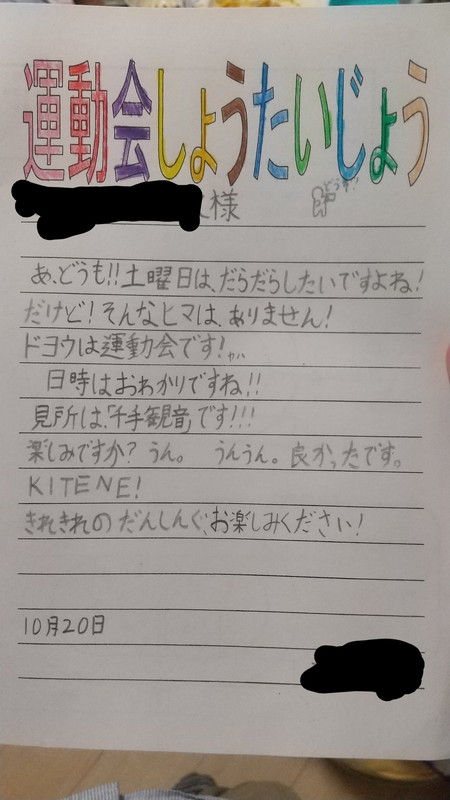 運動会しょうたいじょう
様
どうも!!
あ、どうも!!土曜日は、だらだらしたいですよね!
だけど!そんなヒマは、ありません!
ドヨウは運動会です!
日時はおわかりですね!!
見所は、「千手観音」です!!!
楽しみですか?うん。 うんうん。良かったです。
KITENE!
きれきれのだんしんぐ、お楽しみください!
10月20日